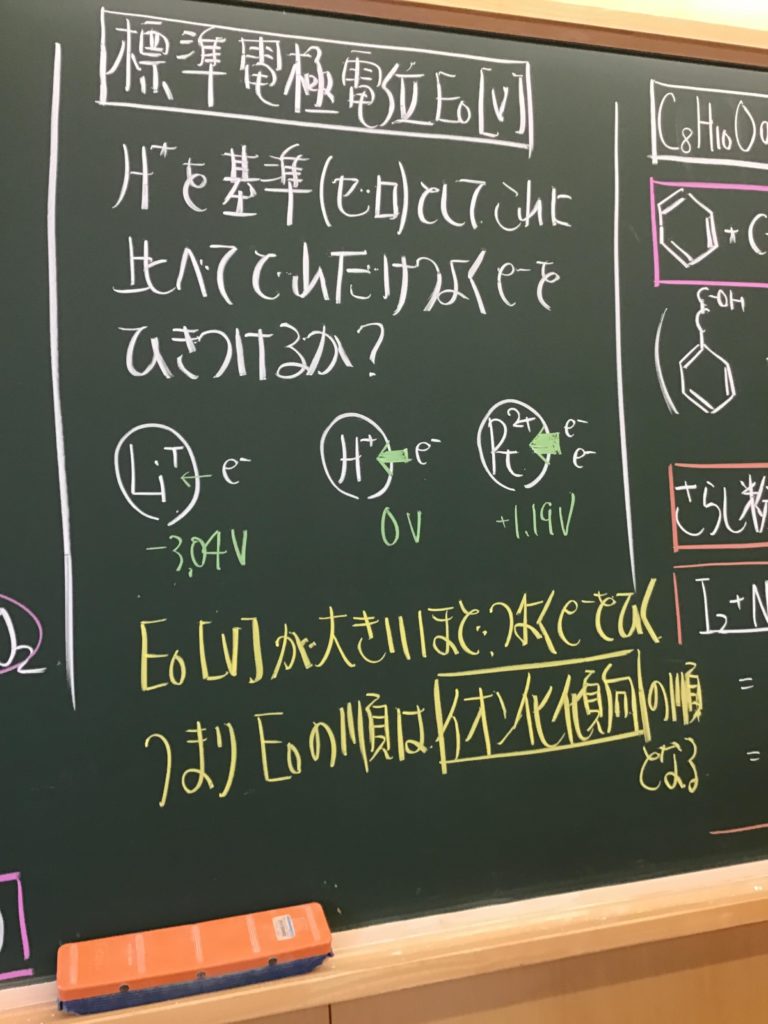 標準電極電位E₀[V]
H⁺を基準(ゼロ)としてこれに
比べてどれだけつよくe⁻を
ひきつけるか?
Li⁺ ← e⁻
H⁺ ← e⁻
Pt²⁺ ← e⁻ e⁻
-3.04V
0V
+1.19V
E₀[V]が大きいほど、つよくe⁻をひく
つまりE₀の順はイオン化傾向の順
となる
O₂
C₈H₁₀O
+ C
-OH
さらし粉
I₂+N
=
=